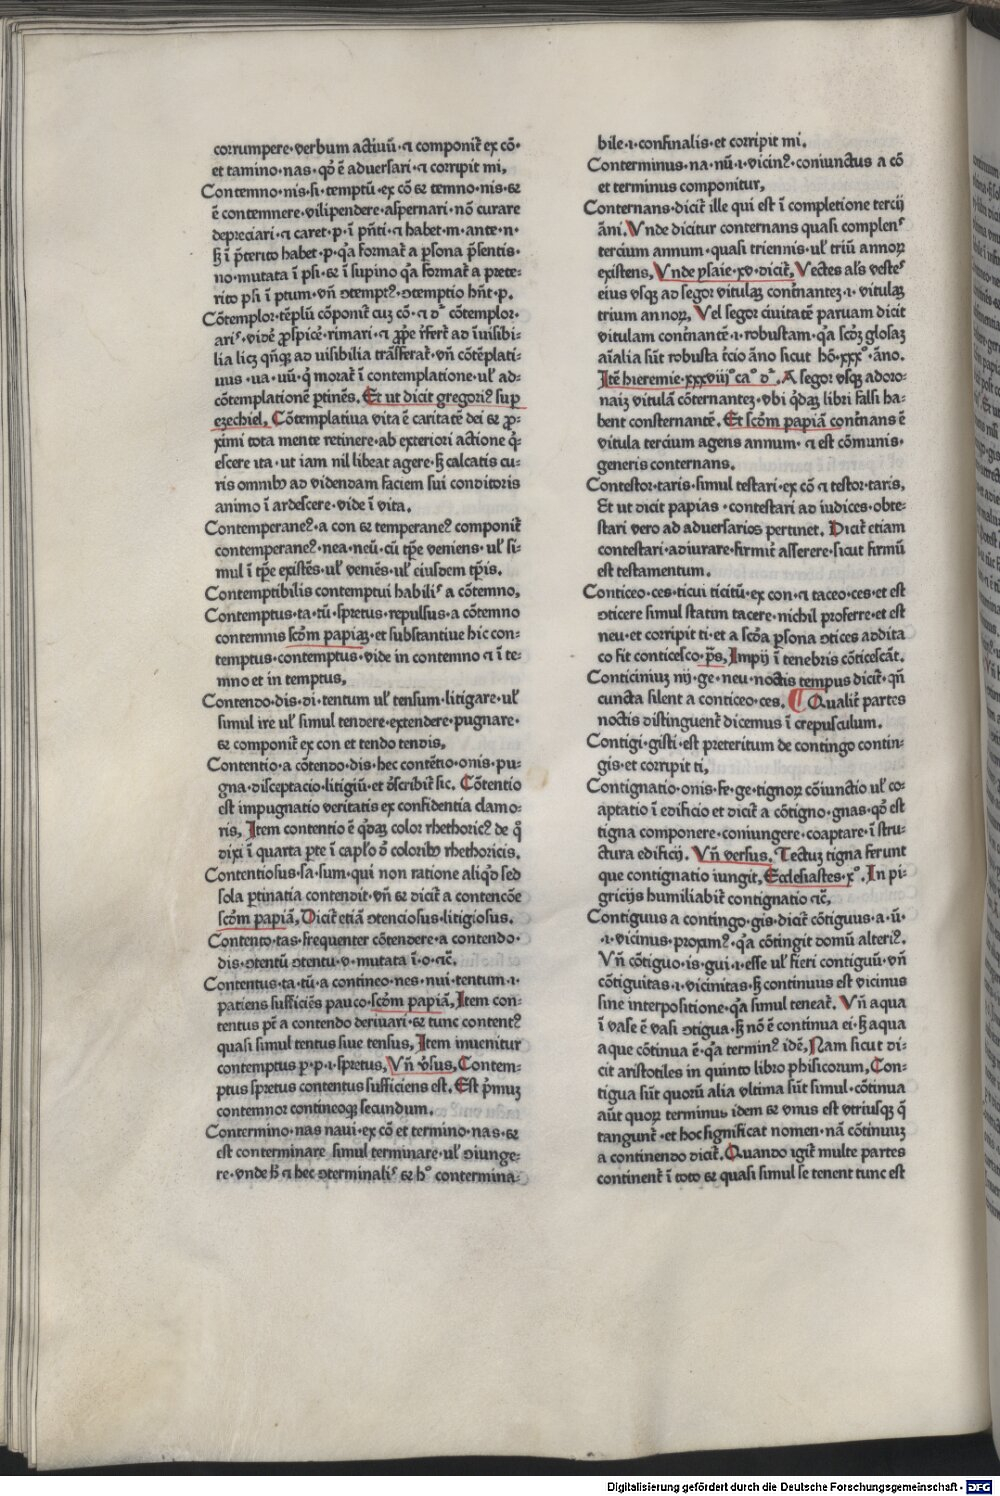 corrumpere·verbum actiuū·⁊ componit᷑ ex cō·
et tamino·nas·qđ ē aduersari·⁊ corripit mi,
Contemno·nis·si·temptū·ex cō ⁊ temno·nis·⁊
ē contemnere·vilipendere·aspernari·nō curare
depreciari·⁊ caret·p·ī pn̄ti·⁊ habet·m·ante·n·
ꝫ ī p̄terito habet·p·q̄a format᷑ a ꝑsona p̄sentis·
no·mutata ī psi·⁊ ī supino q̄a format᷑ a prete⸗
rito psi ī ptum·vn̄ ꝯtempt⁹·ꝯtemptio hn̄t·p.
Cōtemplor·tēplū cōponit᷑ cuꝫ cō·⁊ dr̄ cōtemplor·
aris·vide᷑ ꝓspice᷑·rimari·⁊ ꝓpe īfert᷑ ad īuisibi⸗
lia licꝫ qn̄qꝫ ad uisibilia trāsferat᷑·vn̄ cōtēplati⸗
uus·ua·uū·q̇ morat᷑ ī contemplatione·ul̓ ad⸗
cōtemplationē ꝑtinēs. Et ut dicit gregori⁹ sup
ezechiel, Cōtemplatiua vita ē caritatē dei ⁊ ꝓ⸗
ximi tota mente retinere·ab exteriori actione q̇⸗
escere ita·ut iam nil libeat agere·ꝫ calcatis cu⸗
ris omnibꝰ ad videndam faciem sui conditoris
animo ī ardescere·vide ī vita.
Contemperane⁹·a con ⁊ temperane⁹ componit᷑
contemperane⁹·nea·neū·cū tp̄e veniens·ul̓ si⸗
mul ī tp̄e existēs·ul̓ veniēs·ul̓ eiusdem tp̄is.
Contemptibilis contemptui habilis a cōtemno,
Contemptus·ta·tū·spretus·repulsus·a cōtemno
contemnis scd̄m papiaꝫ·et substantiue hic con⸗
temptus·contemptus·vide in contemno ⁊ ī te⸗
mno et in temptus,
Contendo·dis·di·tentum ul̓ tensum·litigare·ul̓
simul ire ul̓ simul tendere·extendere·pugnare·
⁊ componit᷑ ex con et tendo tendis,
Contentio·a cōtendo·dis·hec contētio·onis·pu⸗
gna·disceptacio·litigiū·et dēscribit᷑ sic. Cōtentio
est impugnatio veritatis ex confidentia clamo⸗
ris, Item contentio ē q̇daꝫ color rhethoric⁹ de q̊
dixi ī quarta ꝑte ī capl̓o dē coloribꝰ rhethoricis.
Contentiosus·sa·sum·qui non ratione aliqd sed
sola ꝑtinatia contendit·vn̄ ⁊ dicit᷑ a contencōe
scd̄m papiā, Dicit᷑ etiā ꝯtenciosus·litigiosus.
Contento·tas·frequenter cōtendere·a contendo·
dis·ꝯtentū ꝯtentu·v·mutata ī·o·⁊c̄.
Contentus·ta·tū·a contineo·nes·nui·tentum·i·
patiens sufficiēs pauco·scd̄m papiā, Item con⸗
tentus pt̄ a contendo deriuari·⁊ tunc content⁹
quasi simul tentus siue tensus, Item inuenitur
contemptus p·p·i·spretus, Vn̄ v̓sus, Contem⸗
ptus spretus contentus sufficiens est. Est p̄muꝫ
contemnor contineoqꝫ secundum.
Contermino·nas naui·ex cō et termino·nas·⁊
est conterminare simul terminare·ul̓ ꝯiunge⸗
re·vnde h̄ ⁊ hec ꝯterminalis ⁊ h° contermina⸗
bile·i·confinalis·et corripit mi.
Conterminus·na·nū·i·vicin⁹·coniunctus a cō
et terminus componitur,
Conternans·dicit᷑ ille qui est ī completione tercij
āni. Vnde dicitur conternans quasi complens
tercium annum·quasi triennis·ul̓ triū annoꝝ
existens, Vnde ysaie·xv·dicit᷑, Vectes al̓s vestes
eius vsqꝫ ad segor vitulaꝫ cont᷑nantez·i·vitulaꝫ
trium annoꝝ, Vel segor ciuitatē paruam dicit
vitulam cont᷑nantē·i·robustam·q̄a scd̄ꝫ glosaꝫ
aīalia sūt robusta t᷑cio āno sicut hō·xxx°·āno.
Itē hieremie·xxxviij° ca° dr̄. A segor vsqꝫ adoro⸗
naiꝫ vitulā cōternantez·vbi q̇daꝫ libri falsi ha⸗
bent consternantē. Et scd̄m papiā cont᷑nans ē
vitula tercium agens annum·⁊ est cōmunis·
generis conternans.
Contestor·taris·simul testari·ex cō ⁊ testor·taris,
Et ut dicit papias·contestari ad iudices·obte⸗
stari vero ad aduersarios pertinet. Dicit᷑ etiam
contestari·adiurare·firmit᷑ asserere·sicut firmū
est testamentum.
Conticeo·ces·ticui ticitū·ex con·⁊ taceo·ces·et est
ꝯticere simul statim tacere·nichil proferre·et est
neu·et corripit ti·et a scd̄a ꝑsona ꝯtices addita
co fit conticesco·pꝰs, Impij ī tenebris cōticescāt.
Conticiniuꝫ nij·ge·neu·noctis tempus dicit᷑·qn̄
cuncta silent a conticeo·ces. ¶ Qualit᷑ partes
noctis distinguent᷑ dicemus ī crepusculum.
Contigi·gisti·est preteritum de contingo contin⸗
gis·et corripit ti,
Contignatio·onis·fe·ge·tignoꝝ cōiunctio ul̓ co⸗
aptatio ī edificio et dicit᷑ a cōtigno·gnas·qđ est
tigna componere·coniungere·coaptare·ī stru⸗
ctura edificij. Vn̄ versus. Tectuꝫ tigna ferunt
que contignatio iungit, Ecclesiastes·x°. In pi⸗
gricijs humiliabit᷑ contignatio ⁊c̄,
Contiguus a contingo·gis·dicit᷑ cōtiguus·a·ū·
·i·vicinus·proxim⁹·q̄a cōtingit domū alteri⁹.
Vn̄ cōtiguo·is·gui·i·esse ul̓ fieri contiguū·vn̄
cōtiguitas·i·vicinitas·ꝫ continuus est vicinus
sine interpositione·q̄a simul teneat᷑. Vn̄ aqua
ī vase ē vasi ꝯtigua·ꝫ nō ē continua ei·ꝫ aqua
aque cōtinua ē·q̄a termin⁹ idē, Nam sicut di⸗
cit aristotiles in quinto libro phisicorum, Con⸗
tigua sūt quorū alia vltima sūt simul·cōtinua
aūt quoꝝ terminus idem ⁊ vnus est vtriusqꝫ q̇
tangunt᷑·et hoc significat nomen·nā cōtinuuꝫ
a continendo dicit᷑. Quando igit᷑ multe partes
continent᷑ ī toto ⁊ quasi simul se tenent tunc est
Digitalisierung gefördert durch die Deutsche Forschungsgemeinschaft - DFG